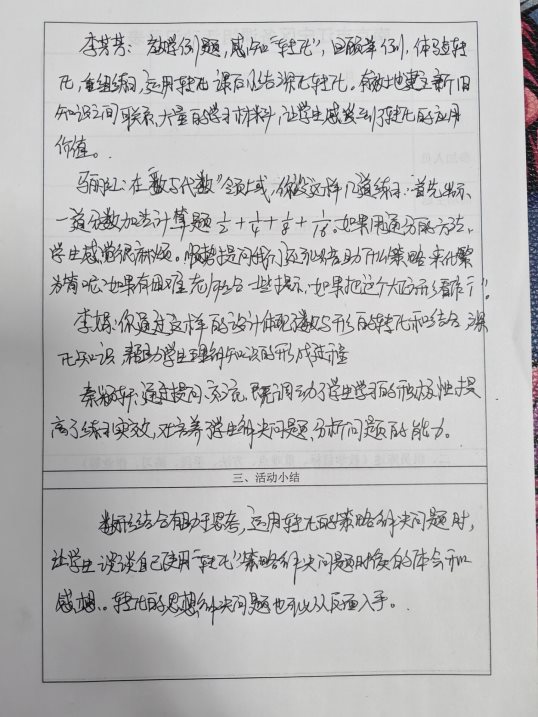 李芳芳：教学例题，感知“转化”，回顾举例，体验转
化，重组练习，运用转化 课后小结 深化转化。有效地建立新旧
知识之间联系，大量的学习材料，让学生感受到了转化的应用
价值。
马丽红：在“数与代数”领域，你设计这样几道练习：首先出示
一道分数加法计算题 1/2+1/4+1/8+1/16。如果用通分的方法，
学生感觉很麻烦。顺势提问我们还可以借助什么策略来化繁
为简呢？如果有困难，先给一些提示，如果把这个大正方形看作“1”。
李娟：你通过这样的设计体现了数与形的转化和结合 深
化知识 帮助学生理解知识的形成过程
秦颖轩：通过提问、交流，既调动了学生学习的积极性，提
高了练习实效，又培养了学生解决问题、分析问题的能力。
三、活动小结
数形结合有助于思考，运用转化的策略解决问题时，
让学生谈谈自己使用“转化”策略解决问题时候的体会和
感想。转化的思想解决问题也可以从反面入手。